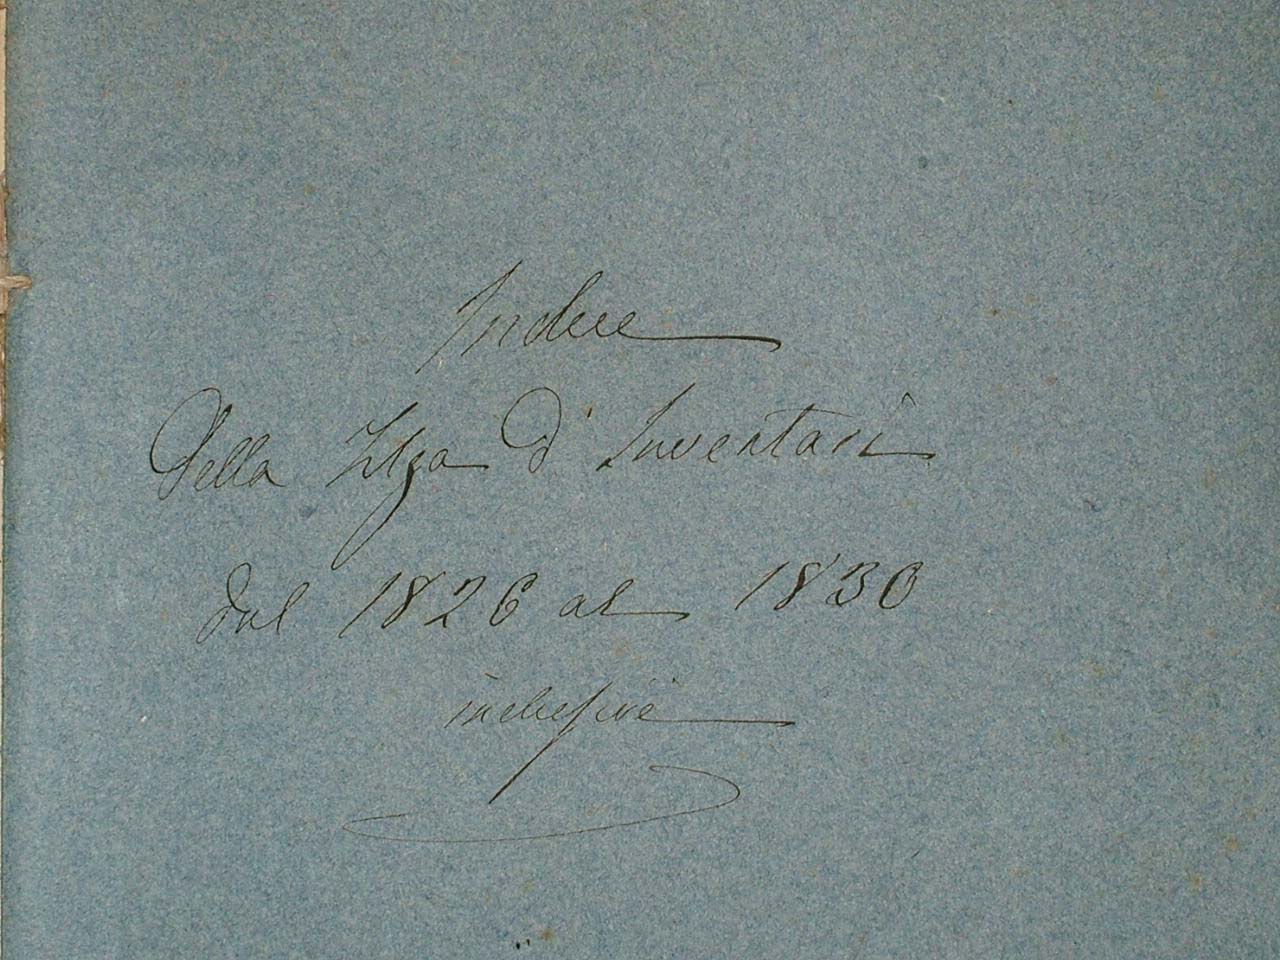 Indice
Della Filza d'Inventari
dal 1826 al 1830
inclusive